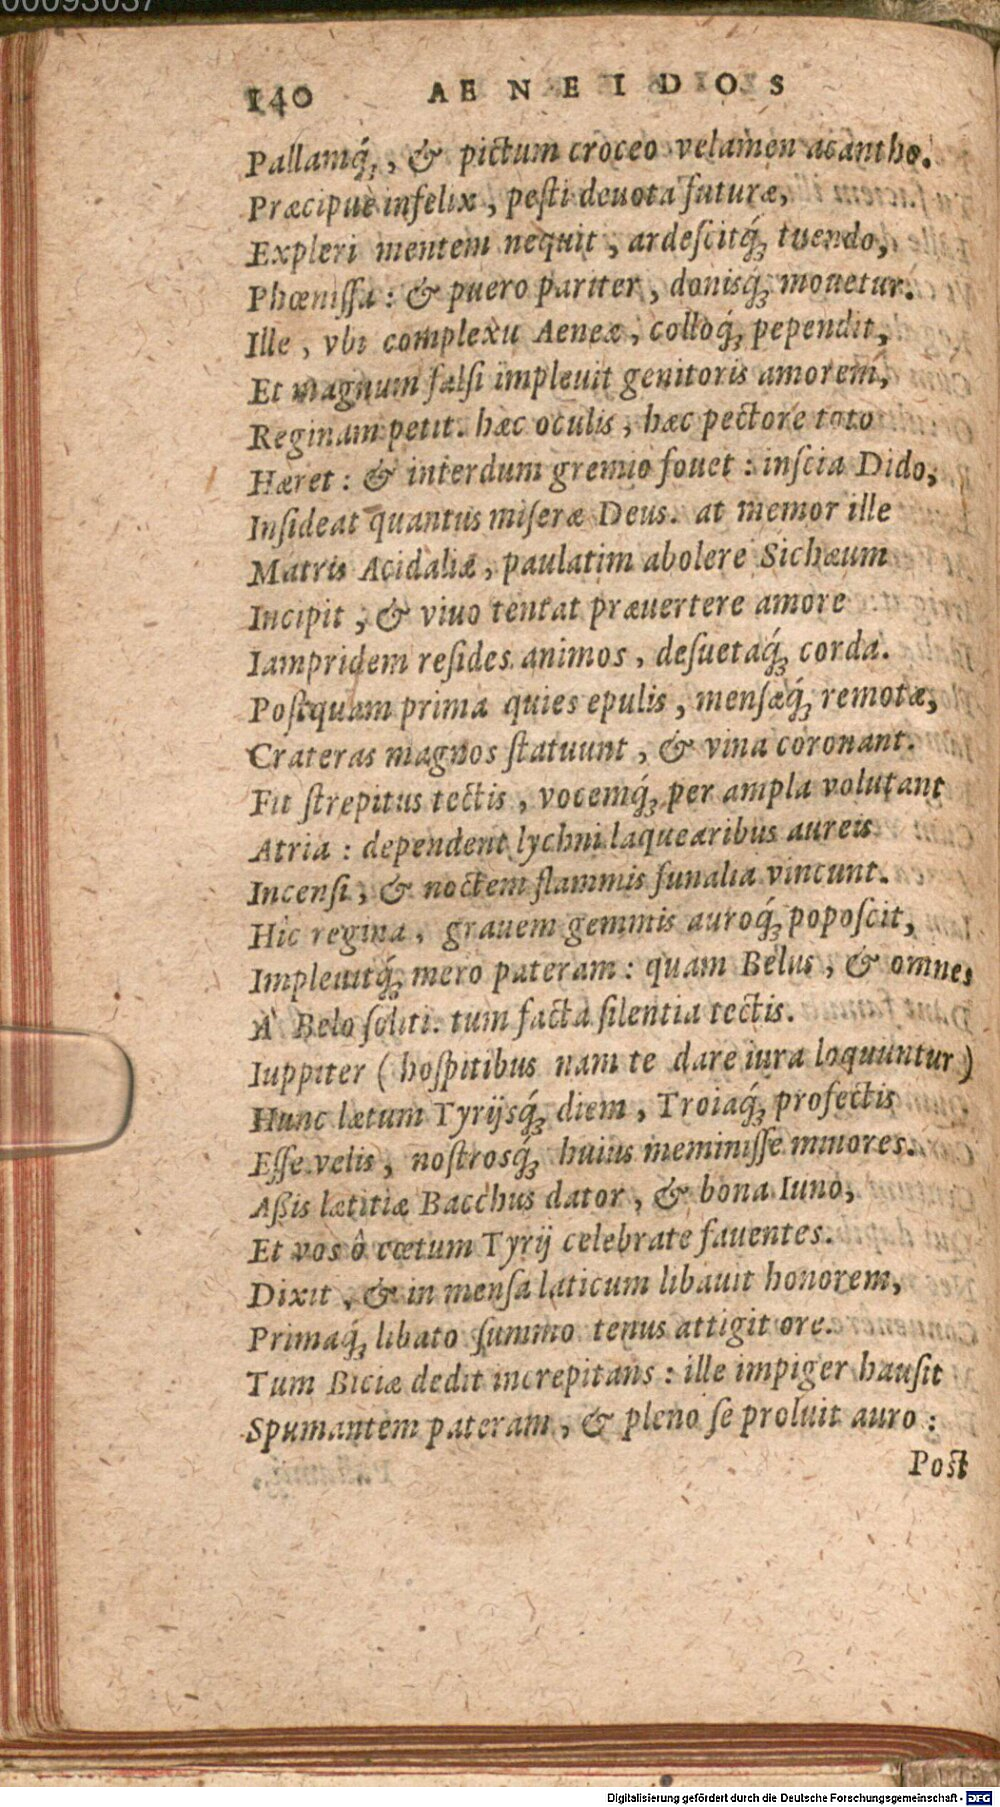 00093037
140 AENEIDOS
Pallamq́;, & pictum croceo velamen acantho.
Præcipuè infelix, pesti deuota futuræ,
Expleri mentem nequit, ardescitq́; tuendo,
Phœnissa: & puero pariter, donisq́; mouetur.
Ille, vbi complexu Aeneæ, colloq́; pependit,
Et magnum falsi impleuit genitoris amorem,
Reginam petit. hæc oculis, hæc pectore toto
Hæret: & interdum gremio fouet: inscia Dido,
Insideat quantus miseræ Deus. at memor ille
Matris Acidaliæ, paulatim abolere Sichæum
Incipit, & viuo tentat præuertere amore
Iampridem resides animos, desuetaq́; corda.
Postquam prima quies epulis, mensæq́; remotæ,
Crateras magnos statuunt, & vina coronant.
Fit strepitus tectis, vocemq́; per ampla volutant
Atria: dependent lychni laquearibus aureis
Incensi, & noctem flammis funalia vincunt.
Hic regina, grauem gemmis auroq́; poposcit,
Impleuitq́; mero pateram: quam Belus, & omnes
A' Belo soliti. tum facta silentia tectis.
Iuppiter (hospitibus nam te dare iura loquuntur)
Hunc lætum Tyrijsq́; diem, Troiaq́; profectis
Esse velis, nostrosq́; huius meminisse minores.
Aßis lætitiæ Bacchus dator, & bona Iuno,
Et vos ô cœtum Tyrij celebrate fauentes.
Dixit, & in mensa laticum libauit honorem,
Primaq́; libato summo tenus attigit ore.
Tum Biciæ dedit increpitans: ille impiger hausit
Spumantem pateram, & pleno se proluit auro:
Post
Digitalisierung gefördert durch die Deutsche Forschungsgemeinschaft - DFG